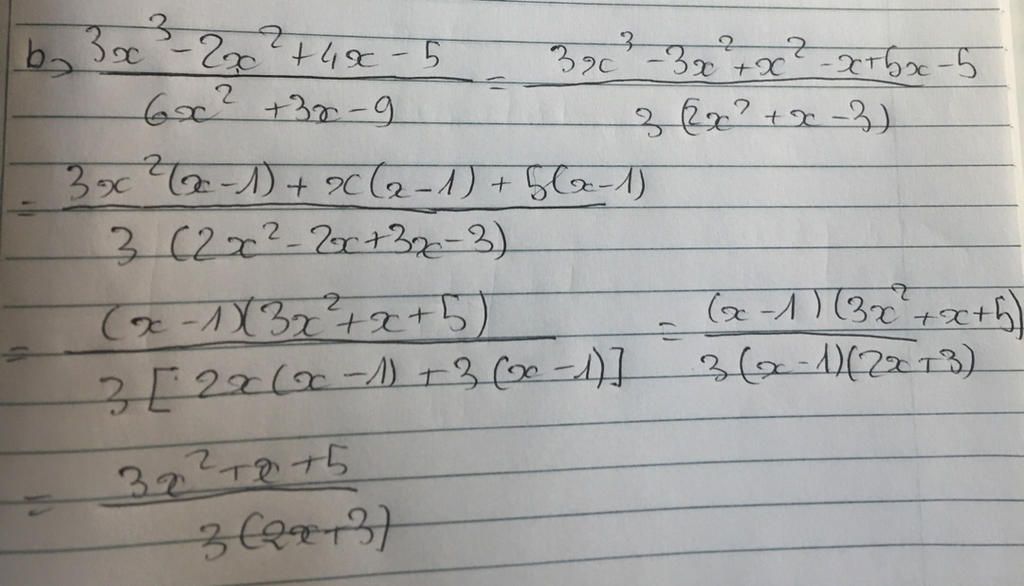 b, (3x³ - 2x² + 4x - 5)/(6x² + 3x - 9) = (3x³ - 3x² + x² - x + 5x - 5)/(3(2x² + x - 3))
= (3x²(x - 1) + x(x - 1) + 5(x - 1))/(3(2x² - 2x + 3x - 3))
= ((x - 1)(3x² + x + 5))/(3[2x(x - 1) + 3(x - 1)]) = ((x - 1)(3x² + x + 5))/(3(x - 1)(2x + 3))
= (3x² + x + 5)/(3(2x + 3))